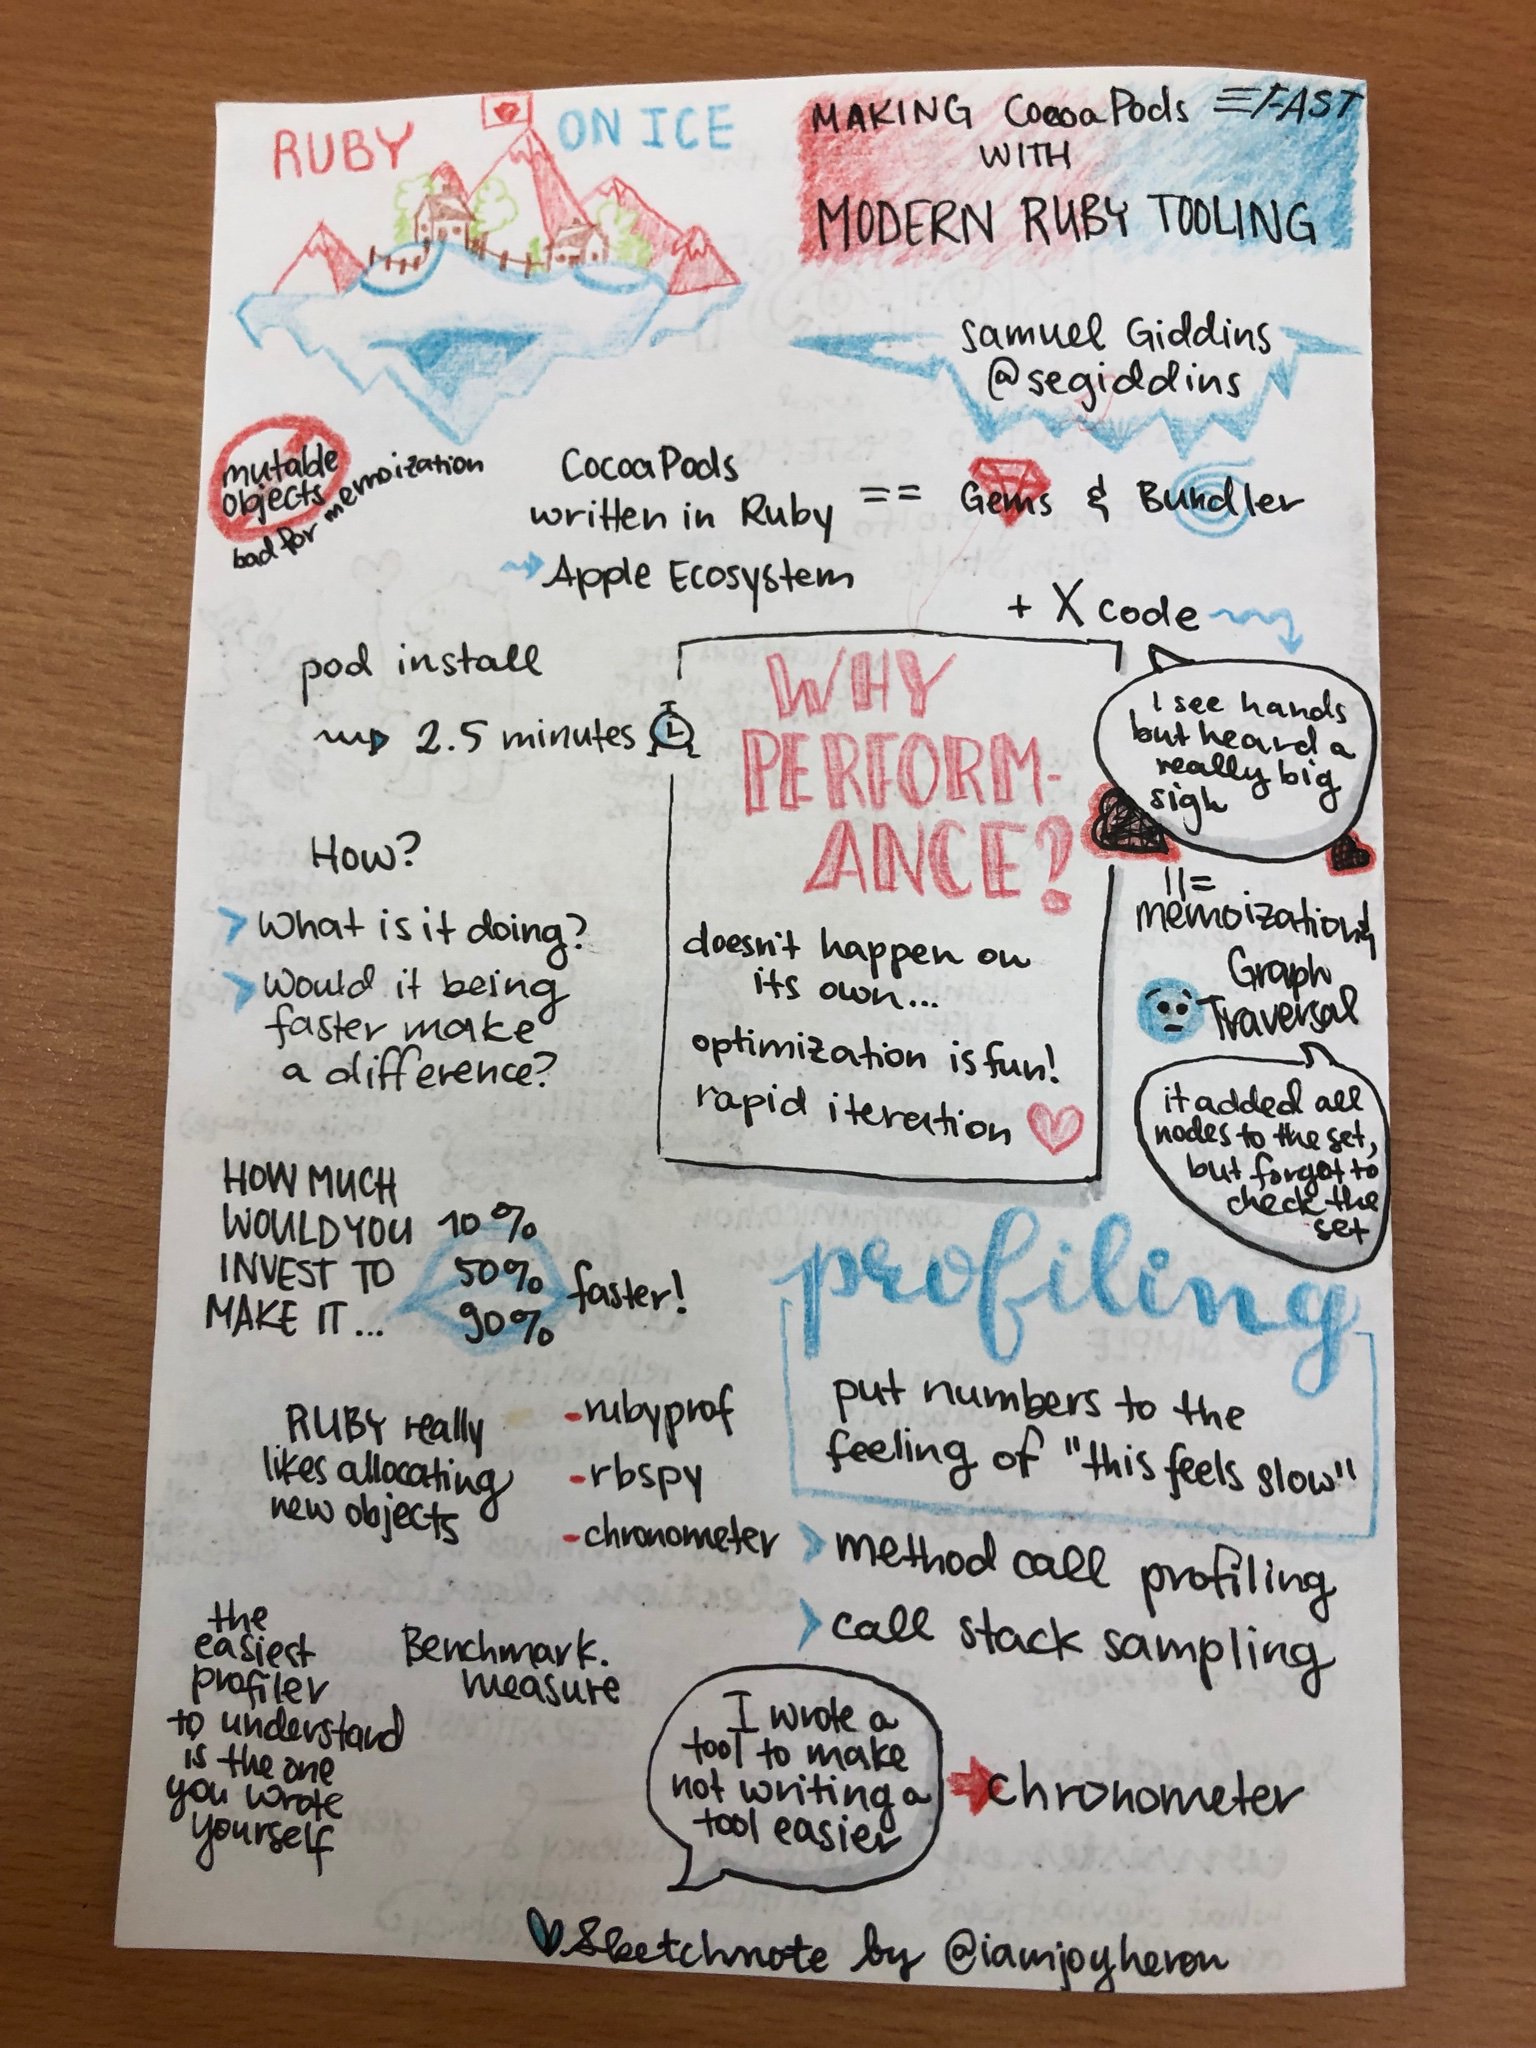 RUBY ON ICE
MAKING CocoaPods FAST
WITH
MODERN RUBY TOOLING
Samuel Giddins
@segiddins
mutable
objects
bad for memoization
CocoaPods
written in Ruby == Gems & Bundler
Apple Ecosystem
+ Xcode
pod install
2.5 minutes
WHY
PERFORM-
ANCE?
doesn't happen on
its own...
optimization is fun!
rapid iteration
I see hands
but heard a
really big
sigh
How?
What is it doing?
Would it being
faster make
a difference?
||=
memoization &
Graph
Traversal
it added all
nodes to the set,
but forgot to
check the
set
HOW MUCH
WOULD YOU
INVEST TO
MAKE IT...
10%
50%
90%
faster!
profiling
put numbers to the
feeling of "this feels slow"
RUBY really
likes allocating
new objects
-rubyprof
-rbspy
-chronometer
method call profiling
call stack sampling
the
easiest
profiler
to understand
is the one
you wrote
yourself
Benchmark.
measure
I wrote a
tool to make
not writing a
tool easier
chronometer
Sketchnote by @iamjoyheron